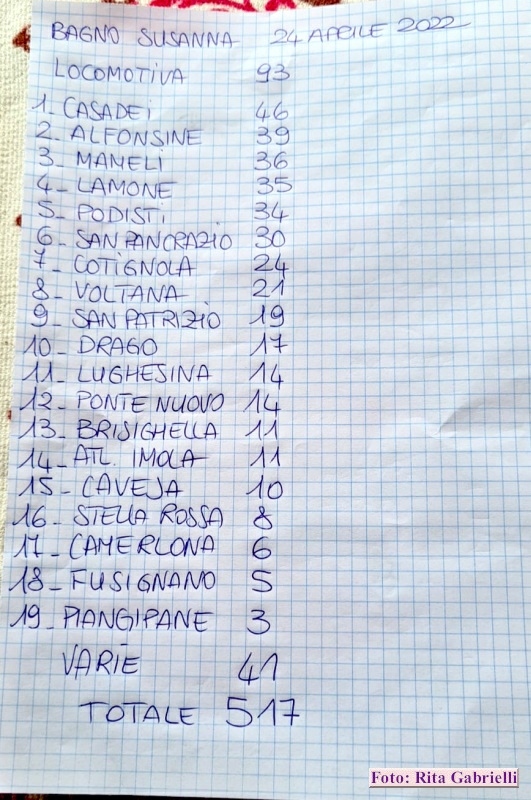 BAGNO SUSANNA 24 APRILE 2022
LOCOMOTIVA 93
1_ CASADEI 46
2_ ALFONSINE 39
3_ MAMELI 36
4_ LAMONE 35
5_ PODISTI 34
6_ SAN PANCRAZIO 30
7_ COTIGNOLA 24
8_ VOLTANA 21
9_ SAN PATRIZIO 19
10_ DRAGO 17
11_ LUGHESINA 14
12_ PONTE NUOVO 14
13_ BRISIGHELLA 11
14_ ATL. IMOLA 11
15_ CAVEJA 10
16_ STELLA ROSSA 8
17_ CAMERLONA 6
18_ FUSIGNANO 5
19_ PIANGIPANE 3
VARIE 41
TOTALE 517
Foto: Rita Gabrielli